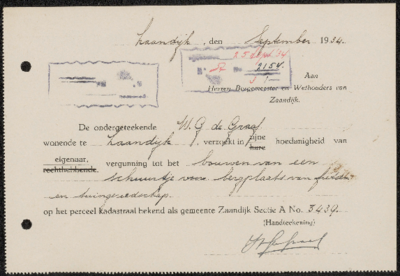 Zaandijk, den September 1934.
2154
Aan
Heeren Burgemeester en Wethouders van
Zaandijk.
De ondergeteekende W. G. de Graaf
wonende te Zaandijk, verzoekt in zijne hare hoedanigheid van
eigenaar, rechthebbende, vergunning tot het bouwen van een
schuurtje voor bergplaats van fietsen
en tuingereedschap
op het perceel kadastraal bekend als gemeente Zaandijk Sectie A No. 3439.
(Handteekening)